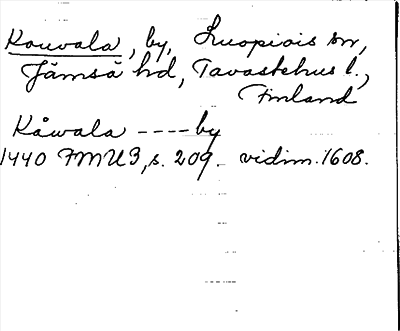 Kouvala, by, Luopiois sn,
Jämsä hd, Tavastehus l.,
Finland
Kåwala ---- by
1440 FMU3, s. 209. vidim. 1608.